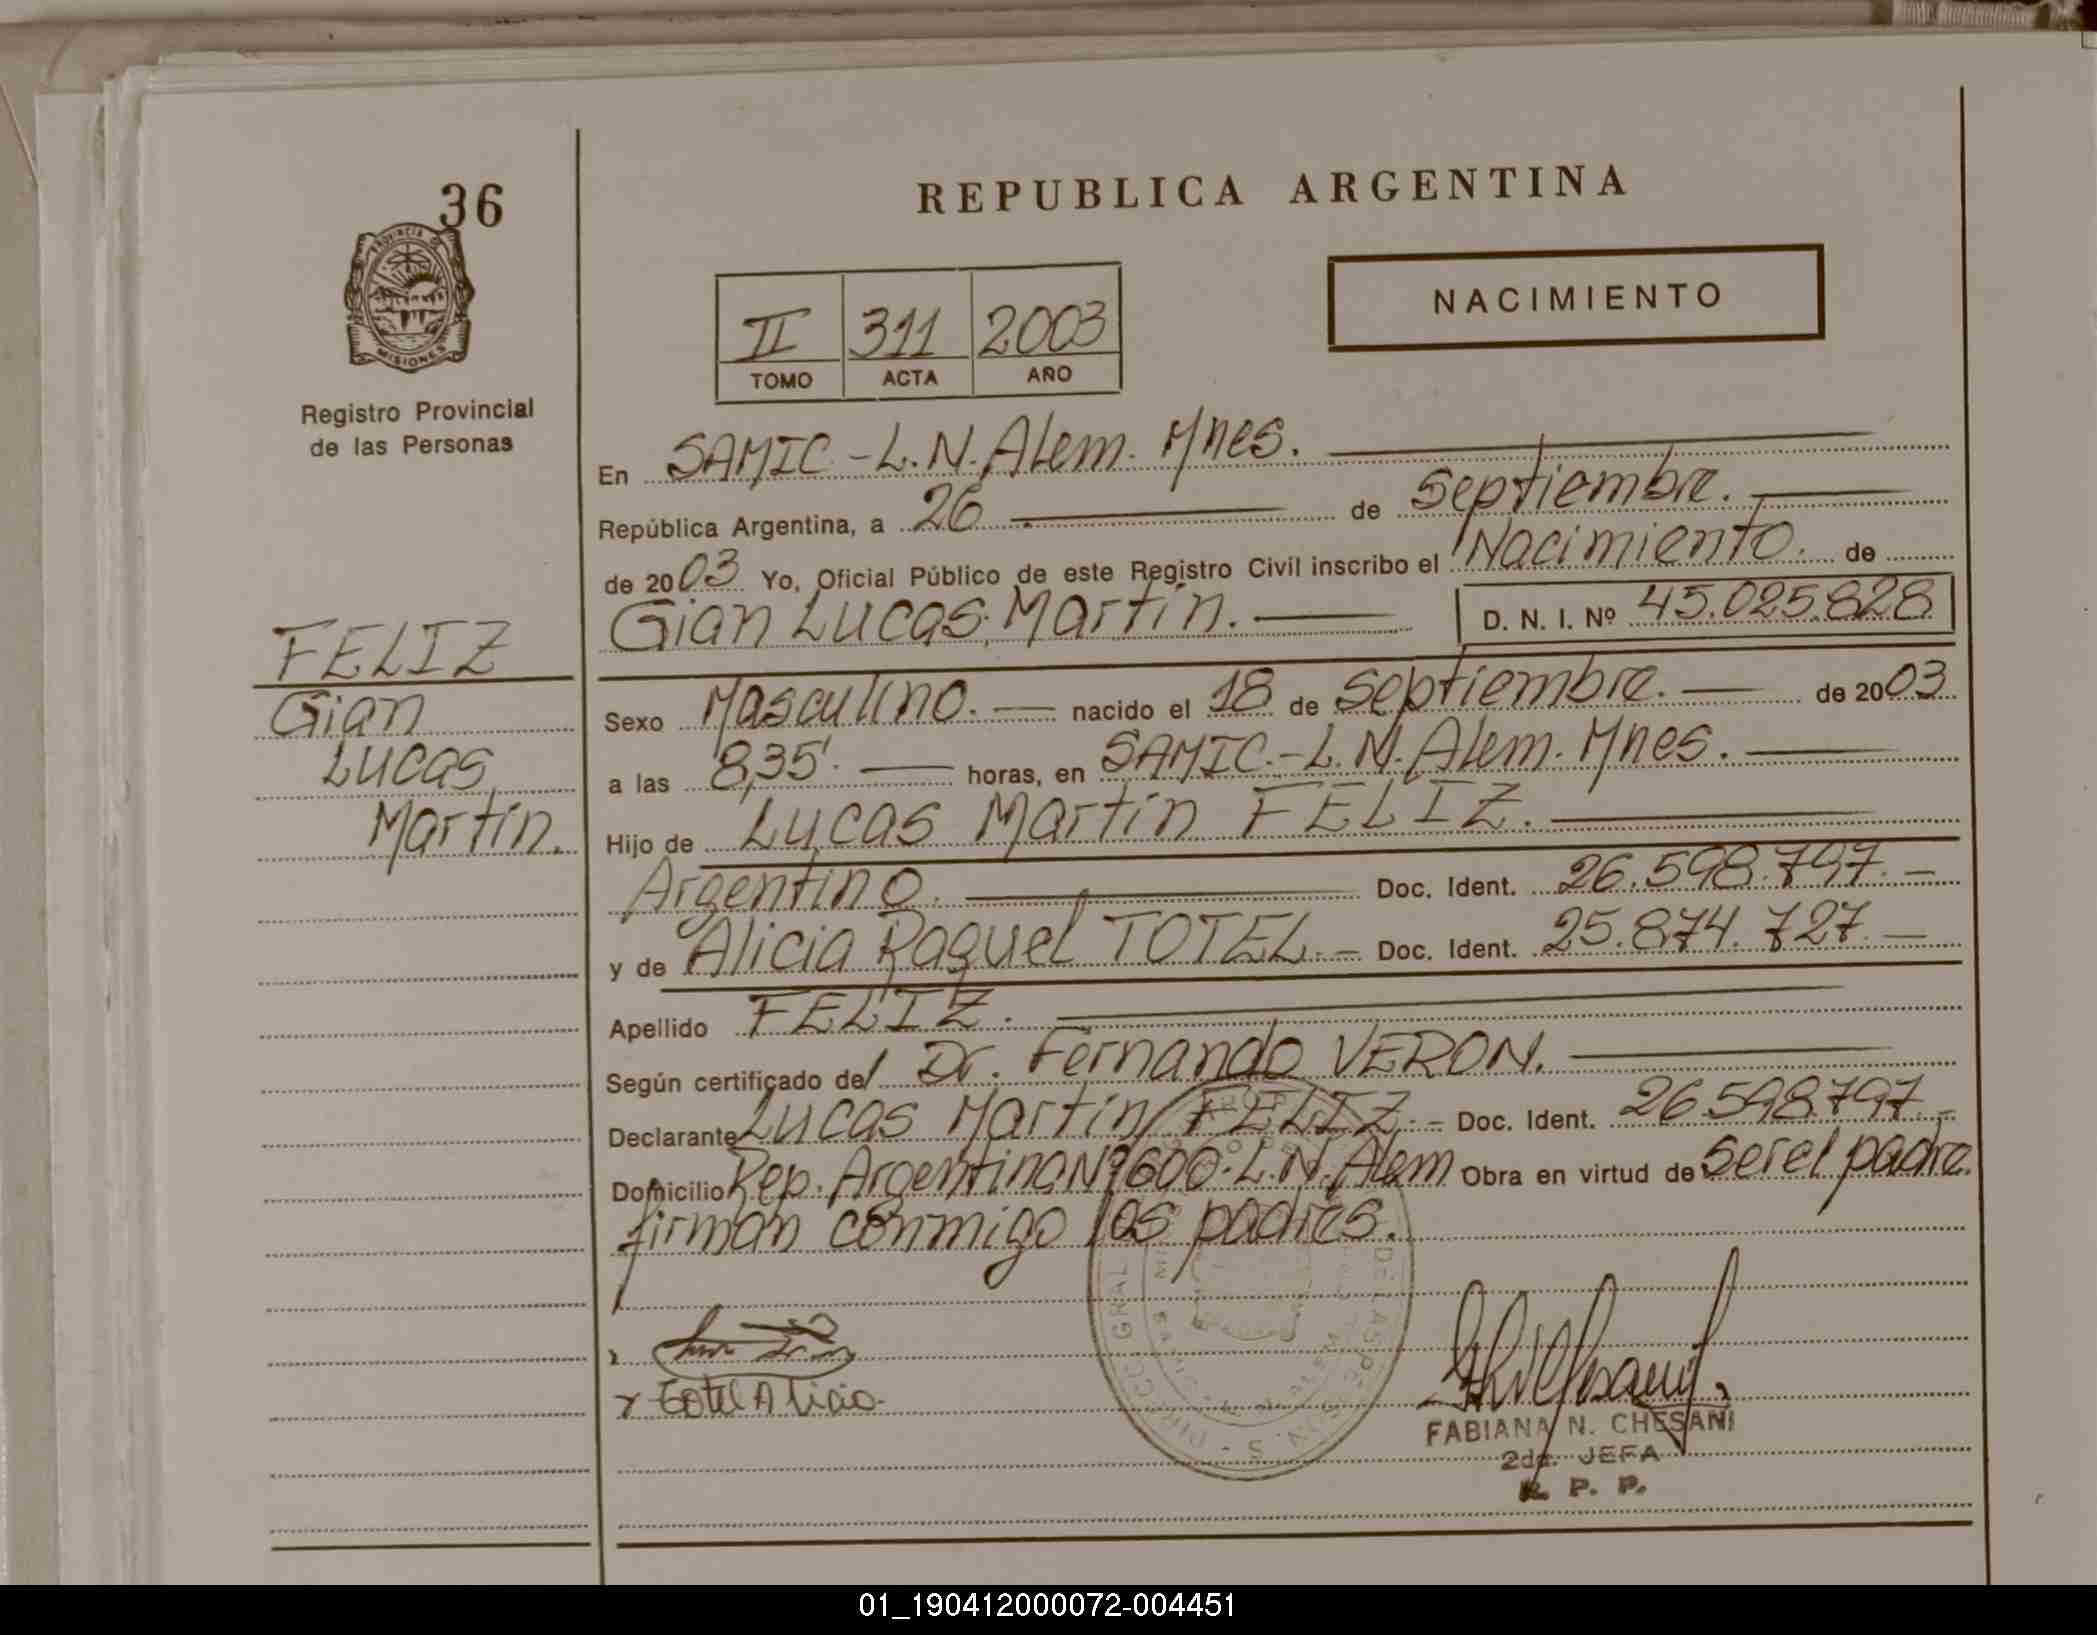 36
PROVINCIA DE
MISIONES
Registro Provincial
de las Personas
FELIZ
Gian
Lucas
Martín.
REPUBLICA ARGENTINA
NACIMIENTO
II 311 2003
TOMO ACTA AÑO
En SAMIC - L.N. Alem. Mnes.
República Argentina, a 26 de Septiembre.
de 2003 Yo, Oficial Público de este Registro Civil inscribo el Nacimiento. de
Gian Lucas Martín. D. N. I. Nº 45.025.828
Sexo Masculino. nacido el 18 de Septiembre. de 2003
a las 8,35'. horas, en SAMIC.- L.N. Alem. Mnes.
Hijo de Lucas Martín FELIZ.
Argentino. Doc. Ident. 26.598.797.-
y de Alicia Raquel TOTEL.- Doc. Ident. 25.874.727.-
Apellido FELIZ.
Según certificado del Dr. Fernando VERON.
Declarante Lucas Martín FELIZ.- Doc. Ident. 26.598.797.-
Domicilio Rep. Argentina Nº 600. L.N. Alem Obra en virtud de ser el padre.
firman conmigo los padres.
Totel Alicia
FABIANA N. CHESANI
2da. JEFA
R. P. P.
01_190412000072-004451